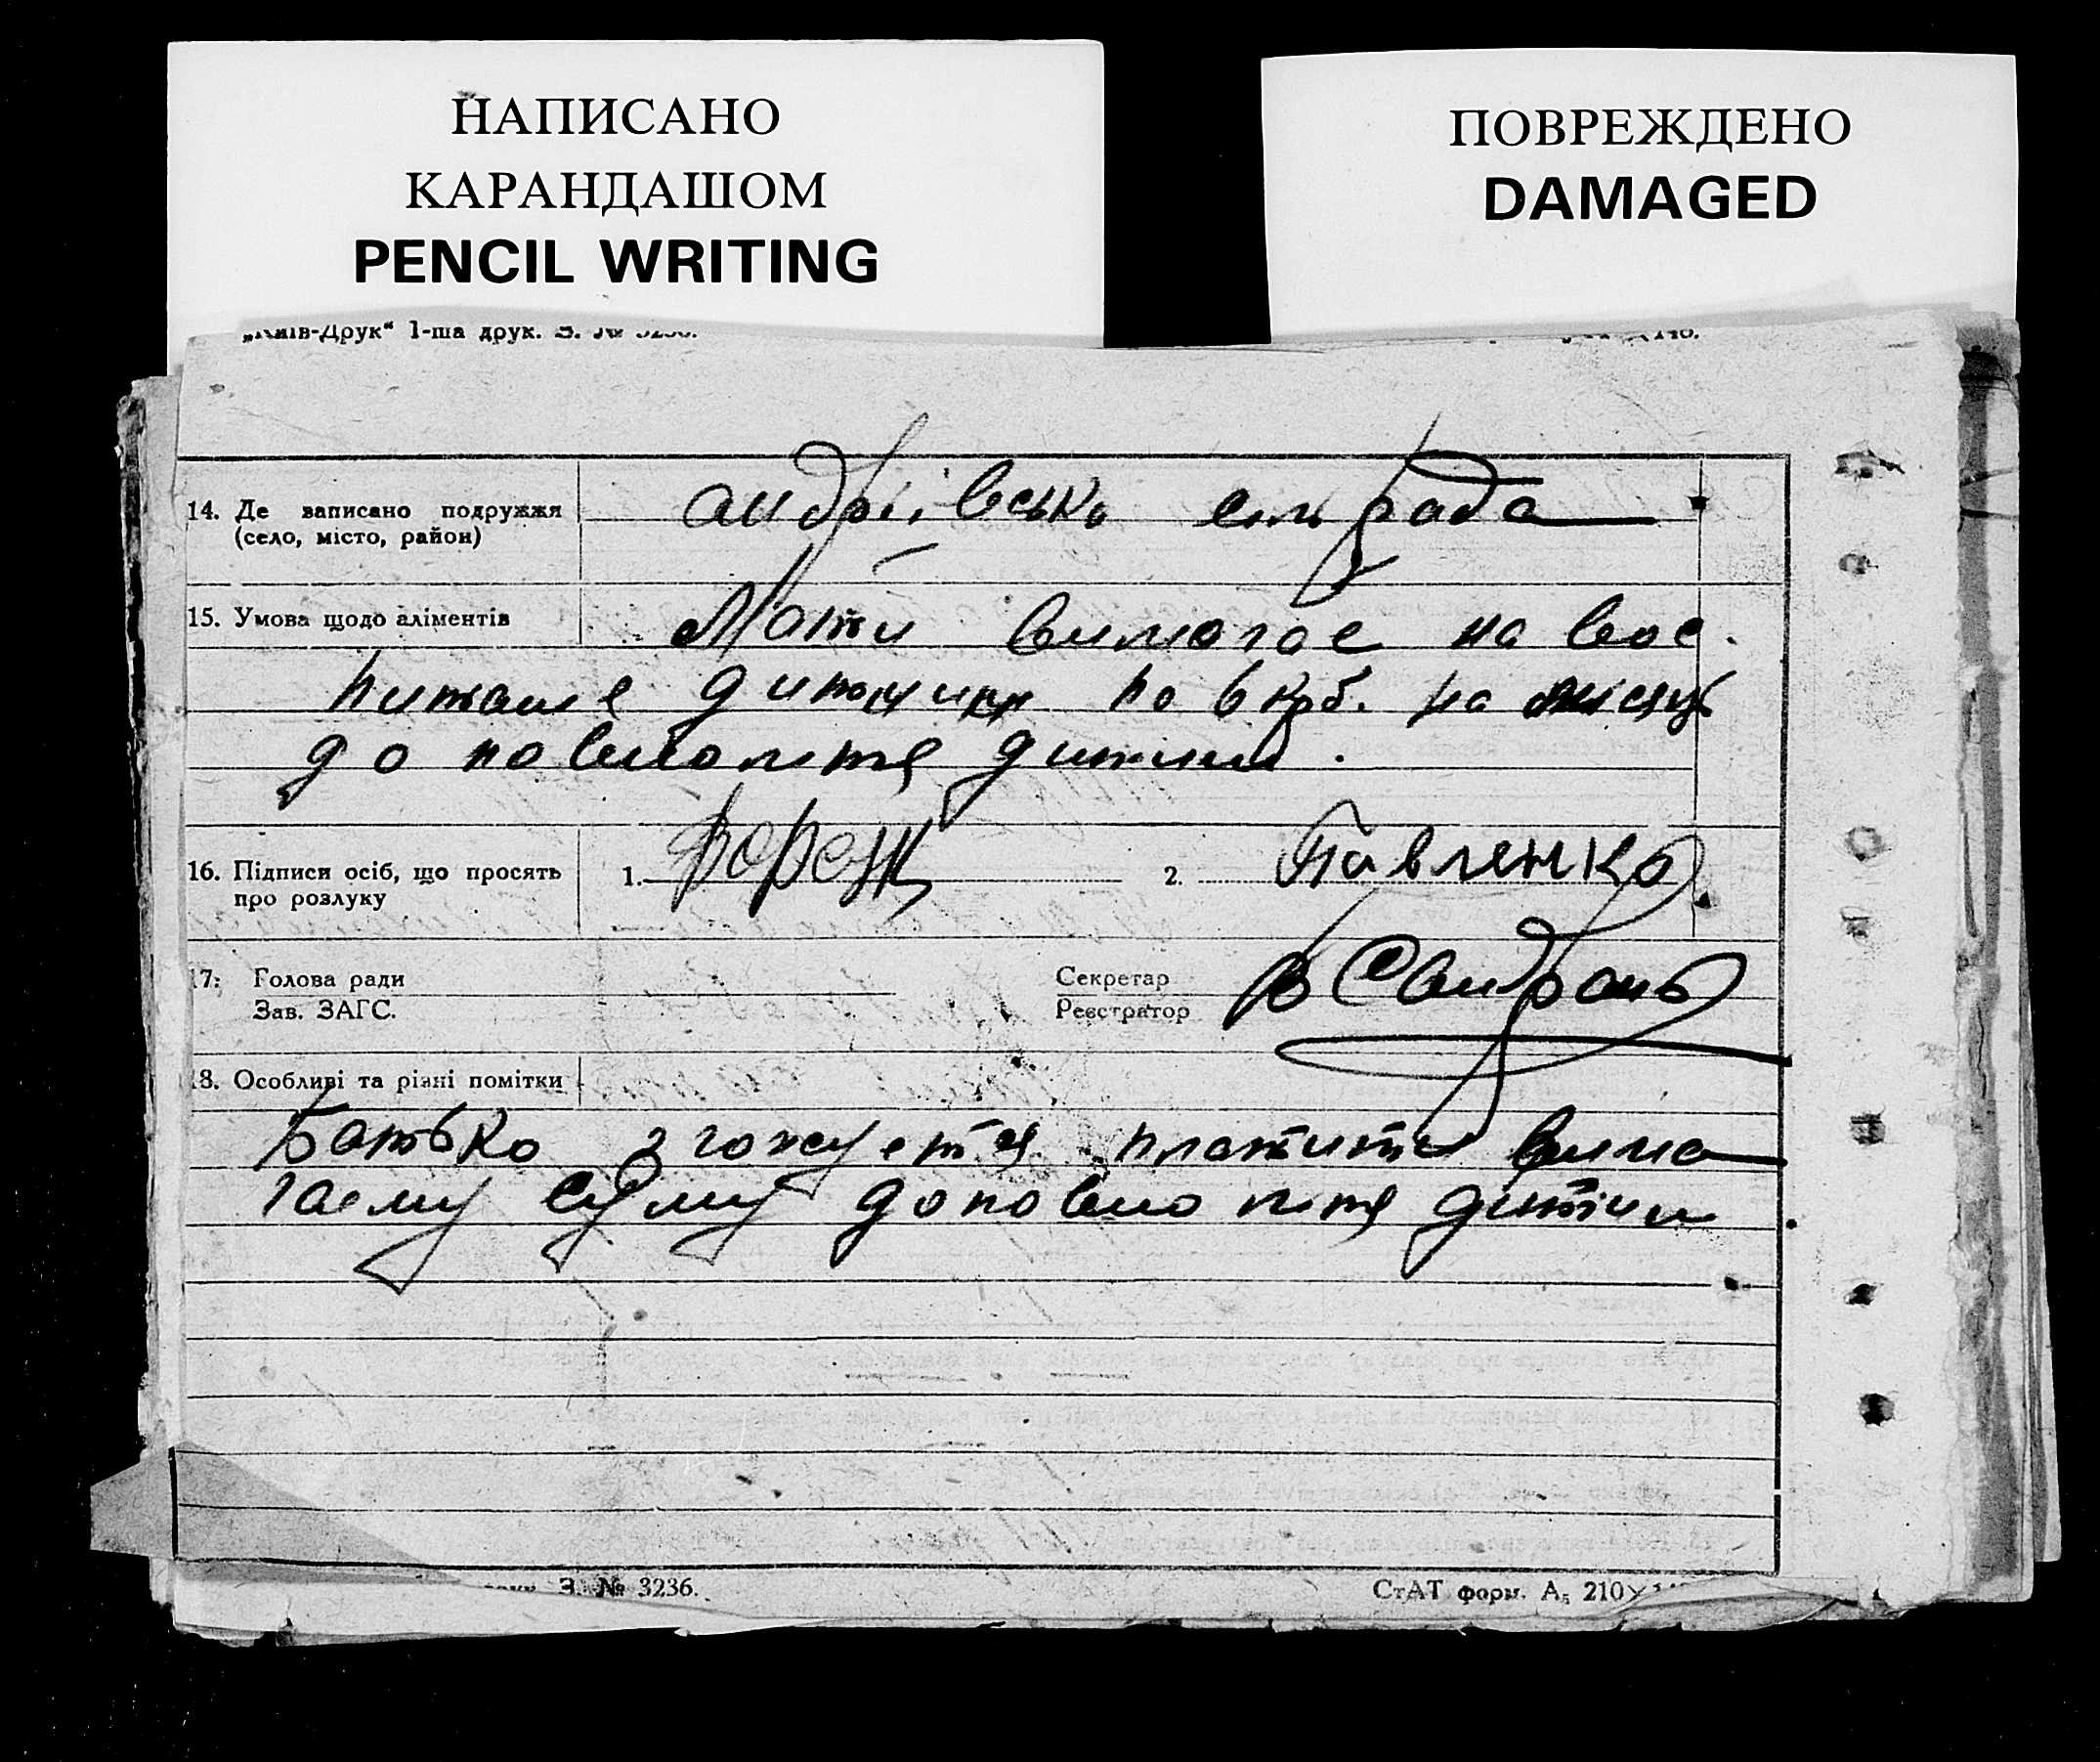 НАПИСАНО
КАРАНДАШОМ
PENCIL WRITING
ПОВРЕЖДЕНО
DAMAGED
„Київ-Друк“ 1-ша друк. З. № 3236.
14. Де записано подружжя
(село, місто, район)
Андріївська сільрада
15. Умова щодо аліментів
Мати вимагає на вос-
питаніе дитини по 6 крб. на місяць
до повнолітя дитини.
16. Підписи осіб, що просять
про розлуку
1.
2. Павленко
17. Голова ради
Зав. ЗАГС.
Секретар
Реєстратор
18. Особливі та різні помітки
Батько згожується платити вима
гаему суму до повнолітя дитини
З. № 3236.
СтАТ форм. А₅ 210×